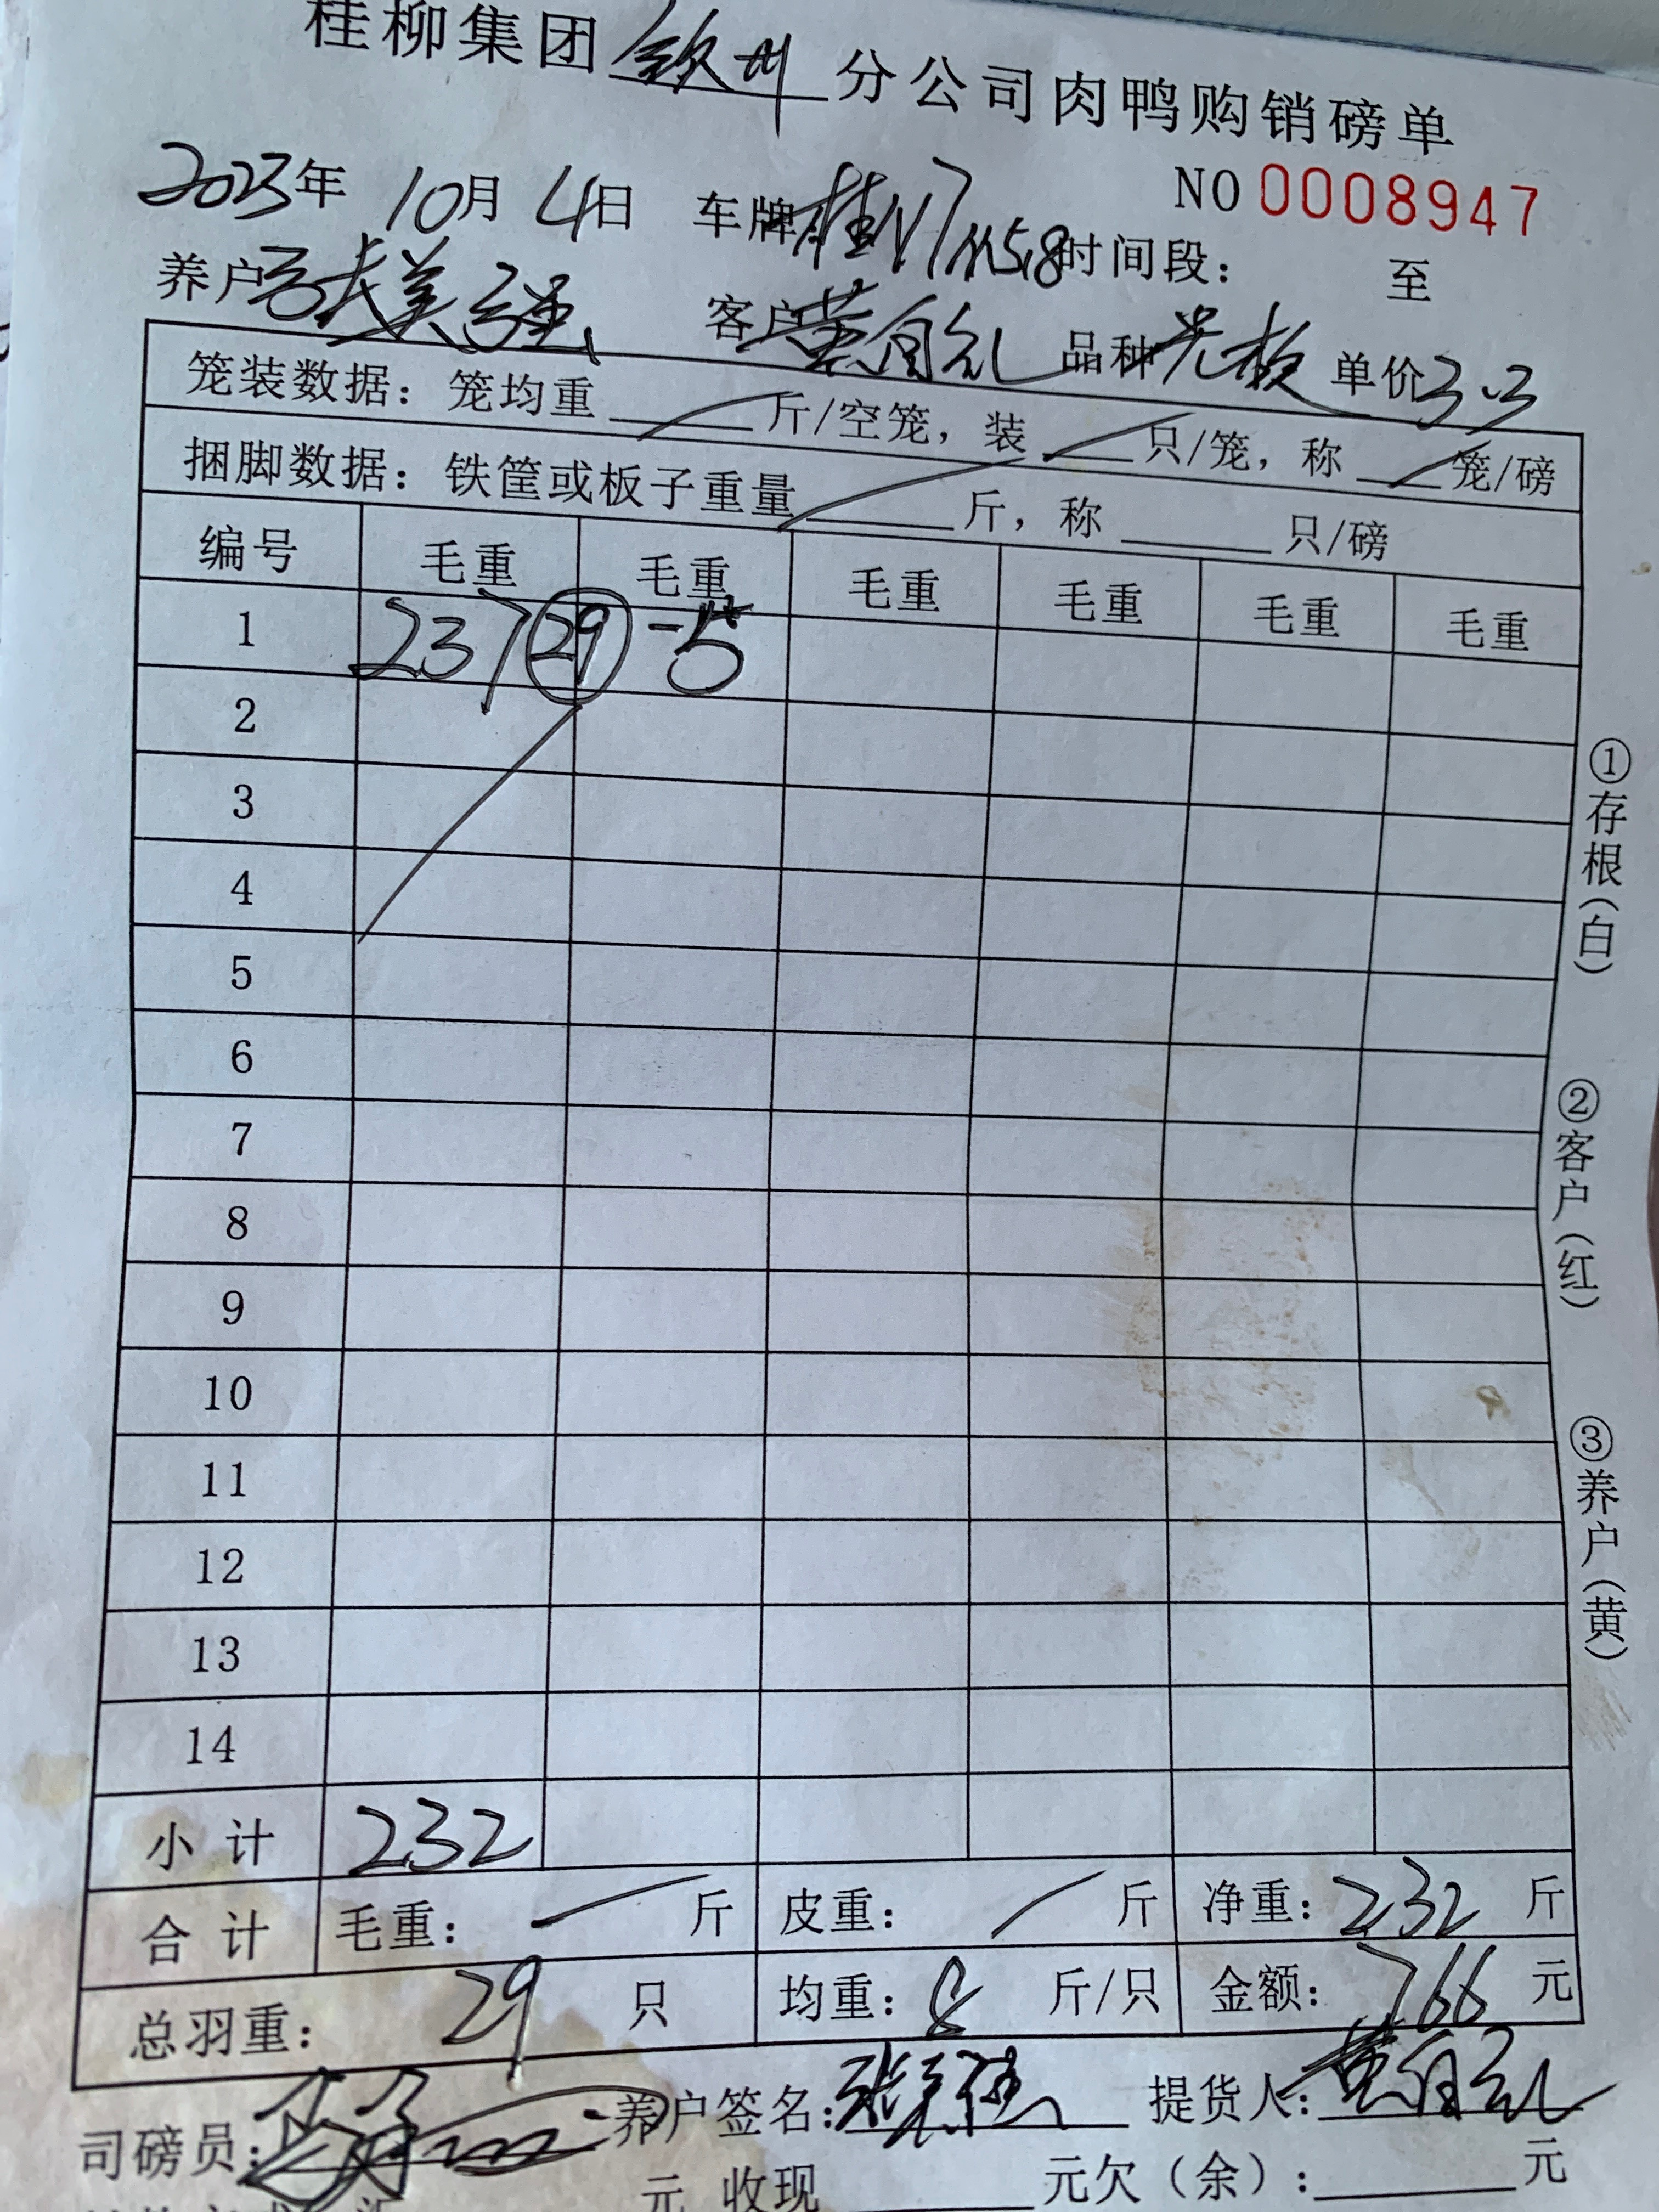 桂柳集团 钦州 分公司肉鸭购销磅单
NO 0008947
2023年 10月 4日 车牌 时间段： 至
养户 张美强 客户 黄自礼 品种 单价 3.3
笼装数据：笼均重 斤/空笼，装 只/笼，称 笼/磅
捆脚数据：铁筐或板子重量 斤，称 只/磅
编号 毛重 毛重 毛重 毛重 毛重 毛重
1 237 29 -5
2
3
4
5
6
7
8
9
10
11
12
13
14
小计 232
合计 毛重： 斤 皮重： 斤 净重：232 斤
总羽重： 29 只 均重：8 斤/只 金额：766 元
司磅员： 养户签名：张美强 提货人：黄自礼
元 收现 元欠（余）： 元
①存根（白）
②客户（红）
③养户（黄）